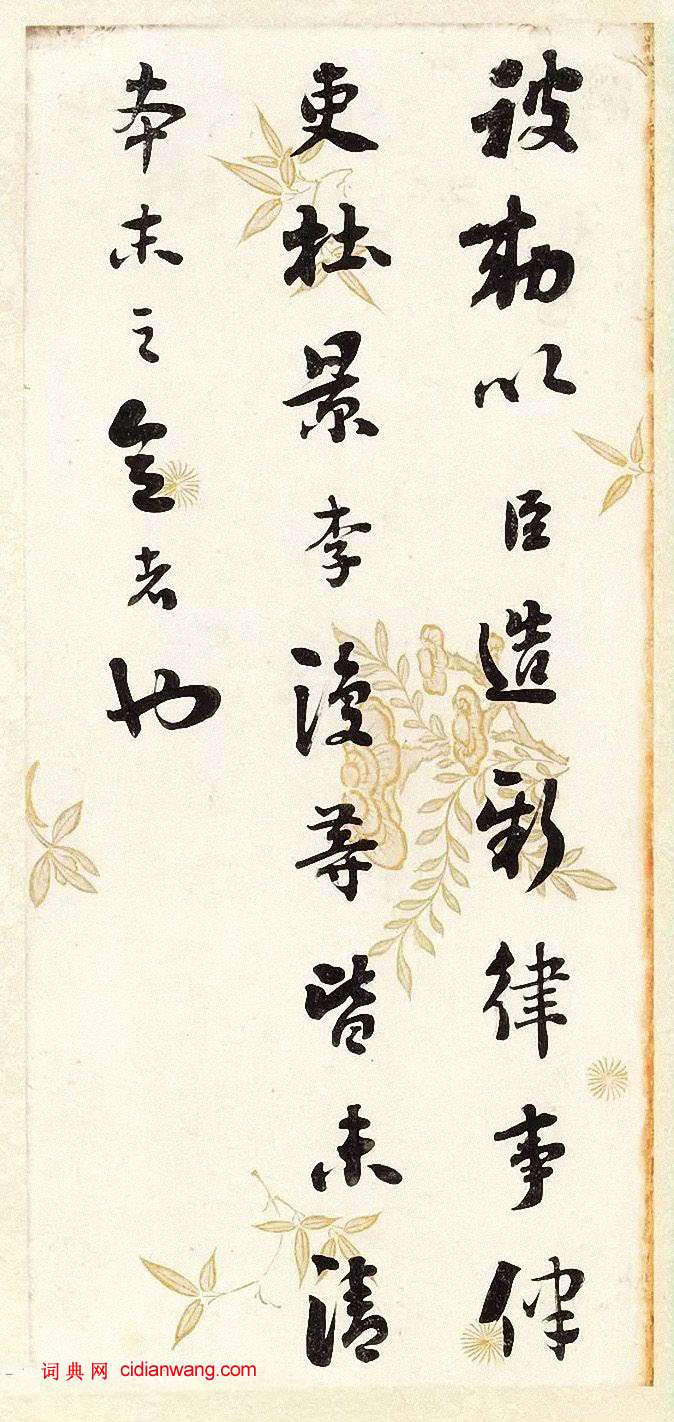 被勅以臣造新律事律
吏杜景李復等皆未清
本末之意者也
词典网 cidianwang.com